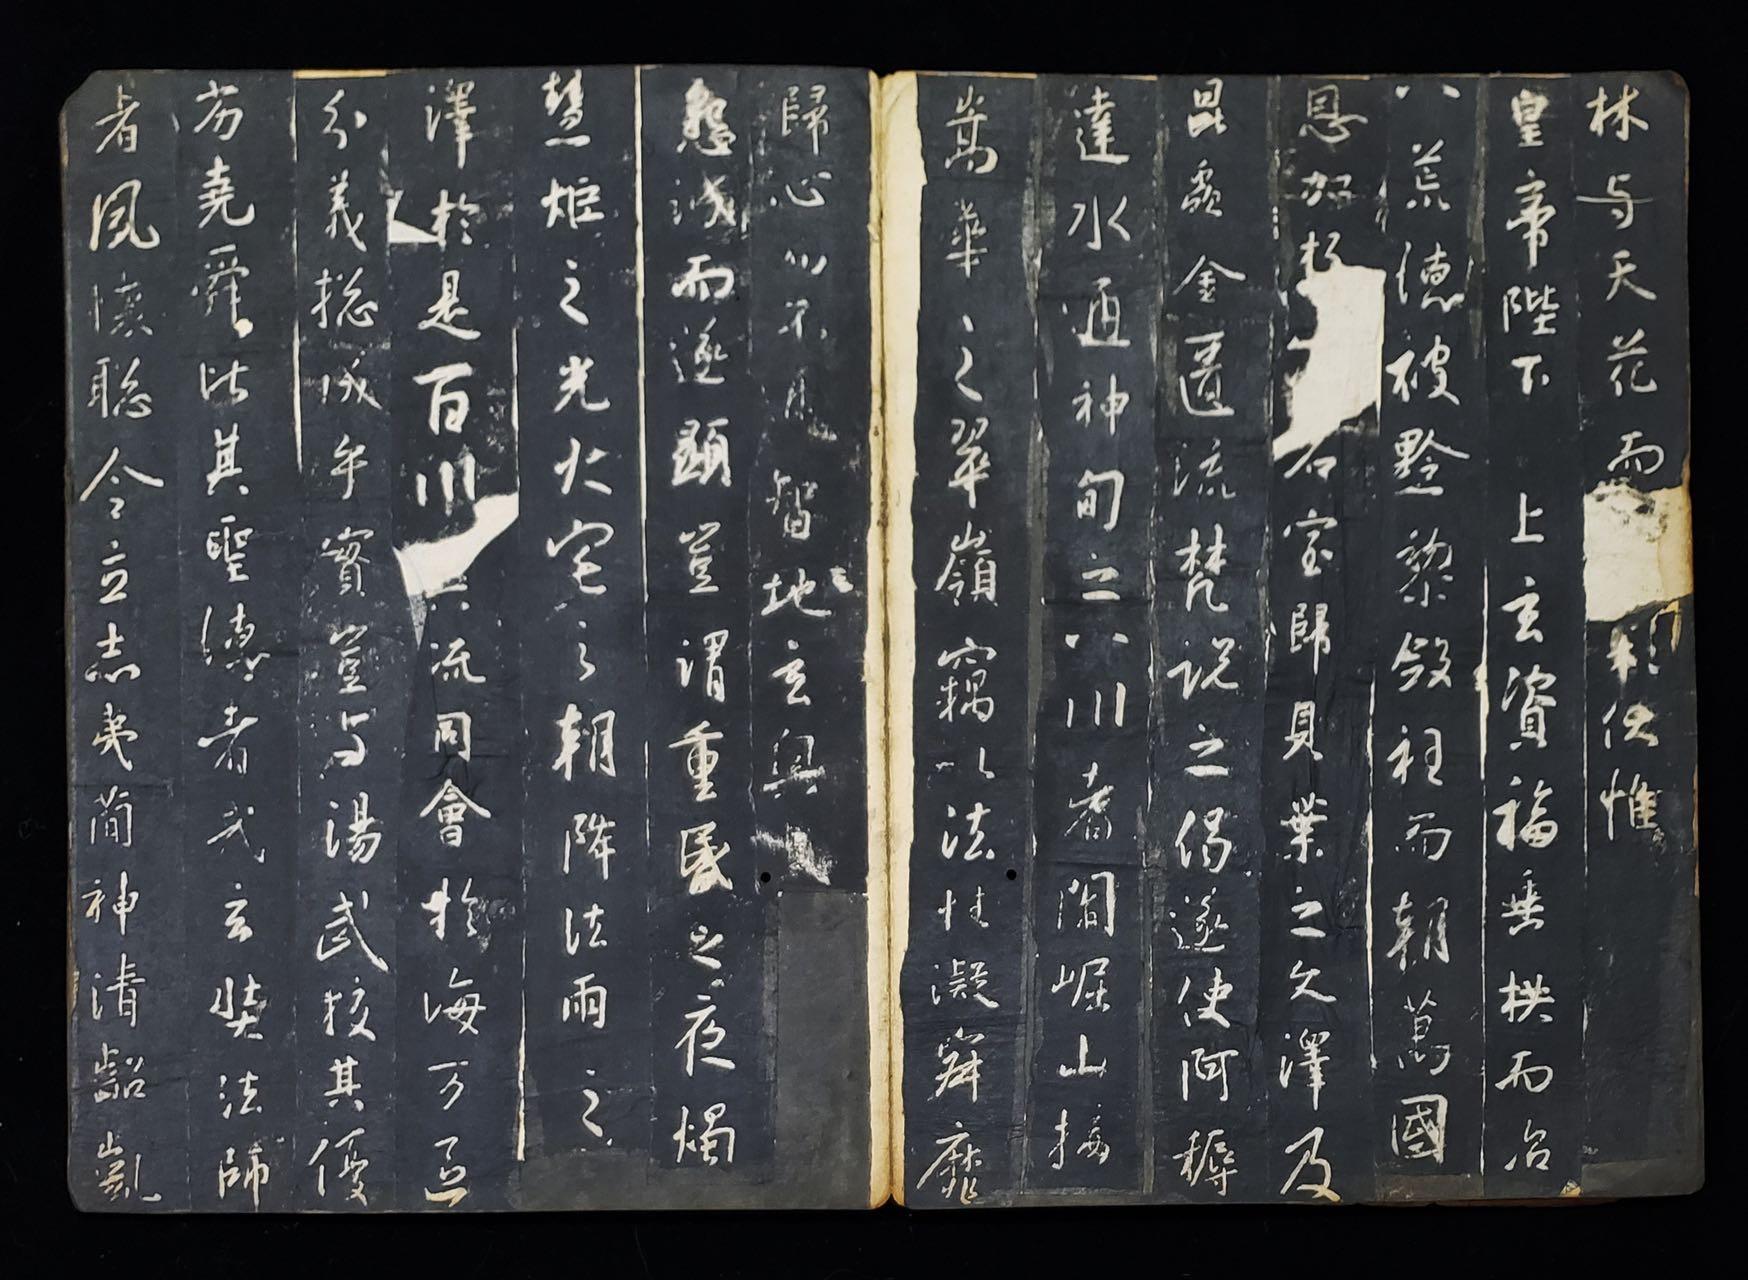 林与天花而彩伏惟
皇帝陛下 上玄資福垂拱而治
八荒德被黔黎斂衽而朝萬國
恩加朽石室歸貝葉之文澤及
昆蟲金匱流梵說之偈遂使阿耨
達水通神甸之八川耆闍崛山接
嵩華之翠嶺竊以法性凝寂靡
歸心而不智地玄奧
懇誠而遂顯豈謂重昏之夜燭
慧炬之光火宅之朝降法雨之
澤於是百川流同會於海万區
分義總成乎實豈与湯武校其優
劣堯舜比其聖德者哉玄奘法師
者夙懷聰令立志夷簡神清齠齔